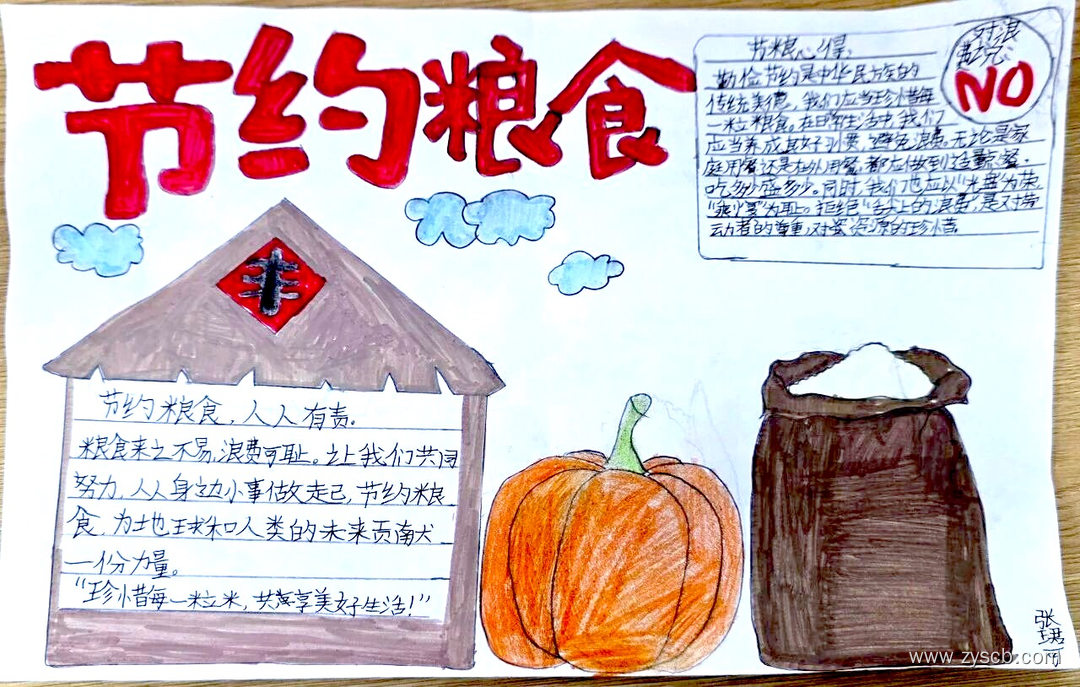 节约粮食
节粮心得
勤俭节约是中华民族的
传统美德，我们应当珍惜每
一粒粮食。在日常生活中，我们
应当养成良好习惯，避免浪费。无论是家
庭用餐还是在外用餐，都应做到适量
吃多少盛多少。同时，我们也应以“光盘”为荣，
“剩宴”为耻。拒绝“舌尖上的浪费”，是对劳
动者的尊重，对资源的珍惜。
对浪
费说
NO
丰
节约粮食，人人有责。
粮食来之不易，浪费可耻。让我们共同
努力，从身边小事做起，节约粮
食，为地球和人类的未来贡献
一份力量。
“珍惜每一粒米，共享美好生活！”
张
珺
www.zyscb.com